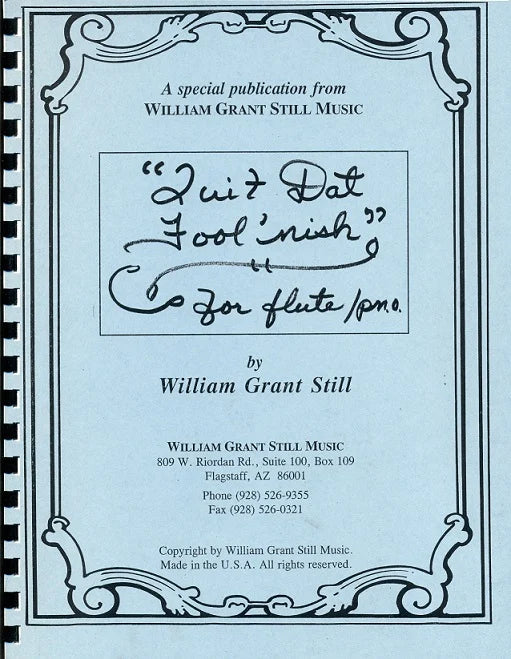 A special publication from
WILLIAM GRANT STILL MUSIC
"Quit Dat
Fool'nish"
For flute/pno.
by
William Grant Still
WILLIAM GRANT STILL MUSIC
809 W. Riordan Rd., Suite 100, Box 109
Flagstaff, AZ 86001
Phone (928) 526-9355
Fax (928) 526-0321
Copyright by William Grant Still Music.
Made in the U.S.A. All rights reserved.